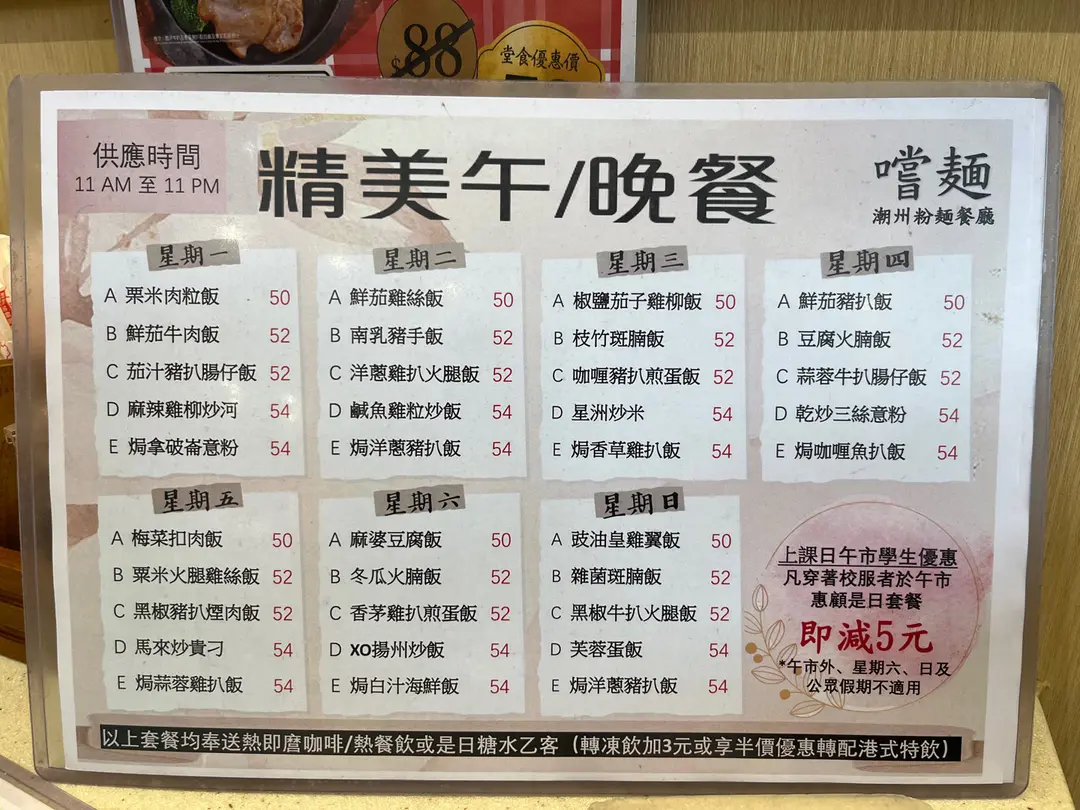 $88
堂食優惠價
供應時間
11 AM 至 11 PM
精美午/晚餐
嚐麵
潮州粉麵餐廳
星期一
A 粟米肉粒飯 50
B 鮮茄牛肉飯 52
C 茄汁豬扒腸仔飯 52
D 麻辣雞柳炒河 54
E 焗拿破崙意粉 54
星期二
A 鮮茄雞絲飯 50
B 南乳豬手飯 52
C 洋蔥雞扒火腿飯 52
D 鹹魚雞粒炒飯 54
E 焗洋蔥豬扒飯 54
星期三
A 椒鹽茄子雞柳飯 50
B 枝竹斑腩飯 52
C 咖喱豬扒煎蛋飯 52
D 星洲炒米 54
E 焗香草雞扒飯 54
星期四
A 鮮茄豬扒飯 50
B 豆腐火腩飯 52
C 蒜蓉牛扒腸仔飯 52
D 乾炒三絲意粉 54
E 焗咖喱魚扒飯 54
星期五
A 梅菜扣肉飯 50
B 粟米火腿雞絲飯 52
C 黑椒豬扒煙肉飯 52
D 馬來炒貴刁 54
E 焗蒜蓉雞扒飯 54
星期六
A 麻婆豆腐飯 50
B 冬瓜火腩飯 52
C 香茅雞扒煎蛋飯 52
D XO揚州炒飯 54
E 焗白汁海鮮飯 54
星期日
A 豉油皇雞翼飯 50
B 雜菌斑腩飯 52
C 黑椒牛扒火腿飯 52
D 芙蓉蛋飯 54
E 焗洋蔥豬扒飯 54
上課日午市學生優惠
凡穿著校服者於午市
惠顧是日套餐
即減5元
*午市外、星期六、日及
公眾假期不適用
以上套餐均奉送熱即磨咖啡/熱餐飲或是日糖水乙客（轉凍飲加3元或享半價優惠轉配港式特飲）